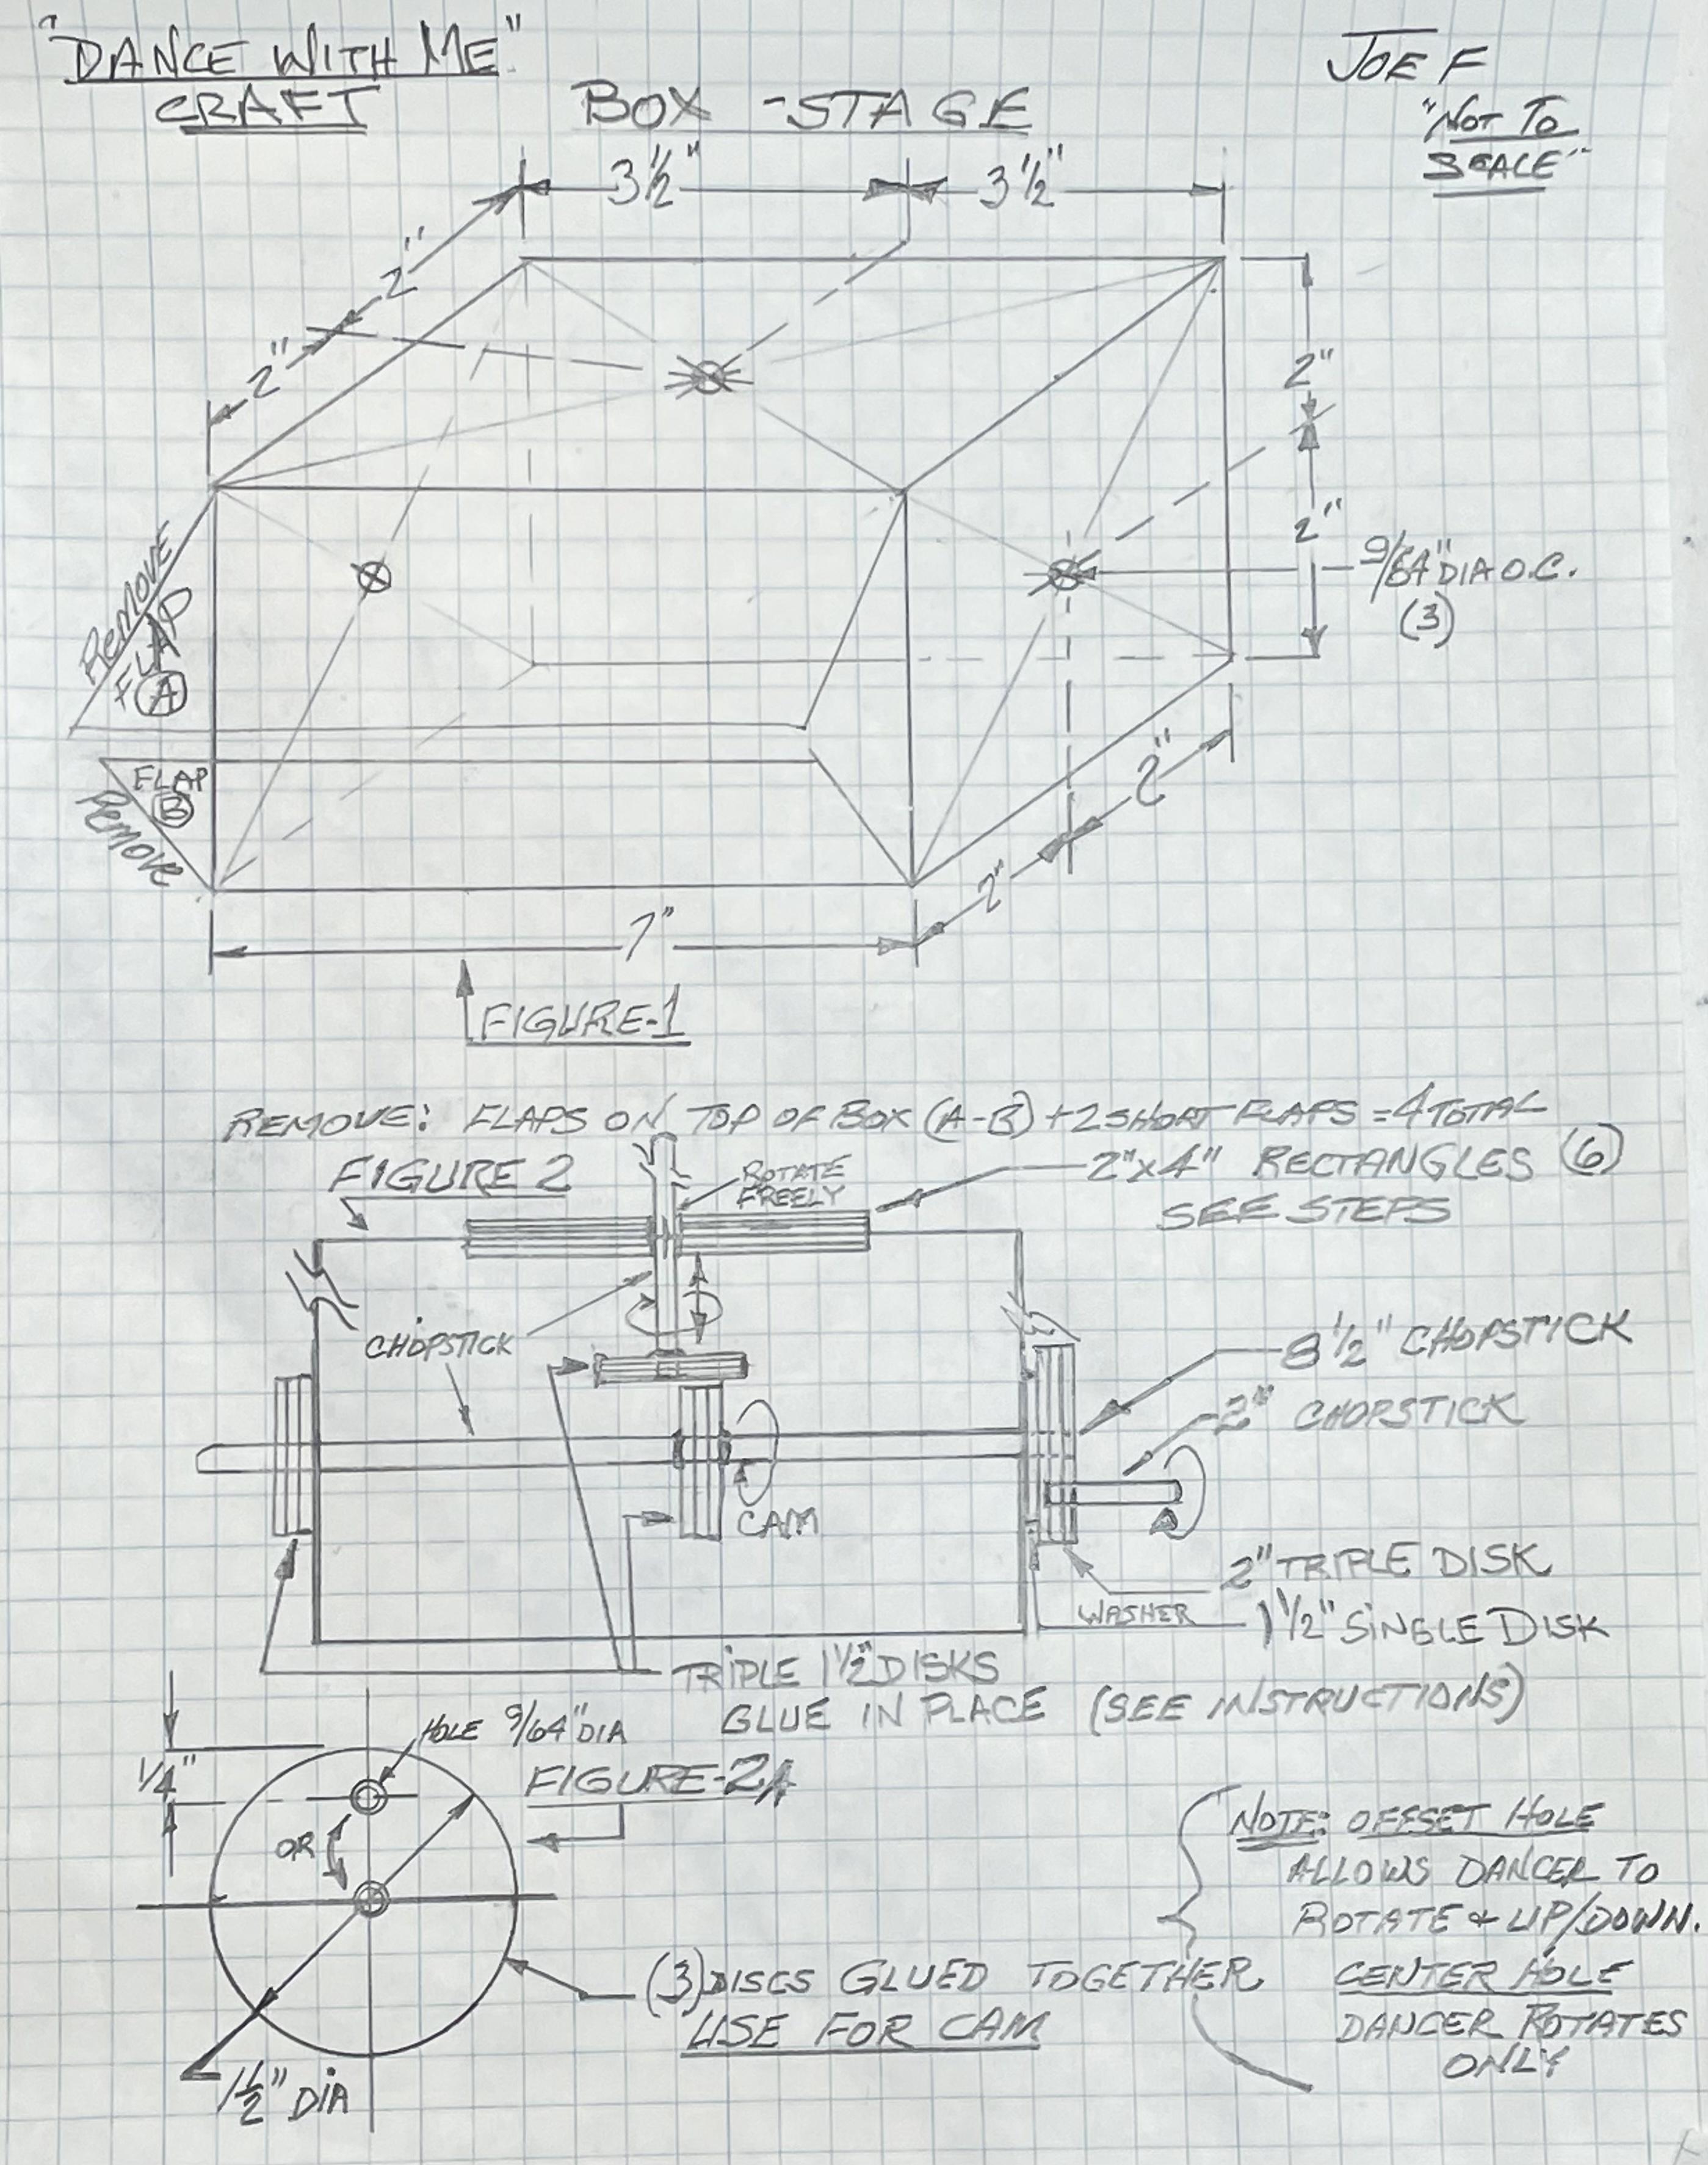 "DANCE WITH ME"
CRAFT
BOX - STAGE
JOE F
"NOT TO
SCALE"
3 1/2"
3 1/2"
2"
2"
2"
2"
9/64" DIA O.C.
(3)
Remove
FLAP
A
FLAP
B
Remove
2"
2"
7"
FIGURE-1
REMOVE: FLAPS ON TOP OF BOX (A-B) + 2 SHORT FLAPS = 4 TOTAL
FIGURE 2
ROTATE
FREELY
2"x4" RECTANGLES (6)
SEE STEPS
CHOPSTICK
8 1/2" CHOPSTICK
2" CHOPSTICK
CAM
2" TRIPLE DISK
WASHER
1 1/2" SINGLE DISK
TRIPLE 1 1/2" DISKS
GLUE IN PLACE (SEE INSTRUCTIONS)
HOLE 9/64" DIA
1/4"
FIGURE-2A
OR
NOTE: OFFSET HOLE
ALLOWS DANCER TO
ROTATE & UP/DOWN.
CENTER HOLE
DANCER ROTATES
ONLY
(3) DISCS GLUED TOGETHER
USE FOR CAM
1 1/2" DIA